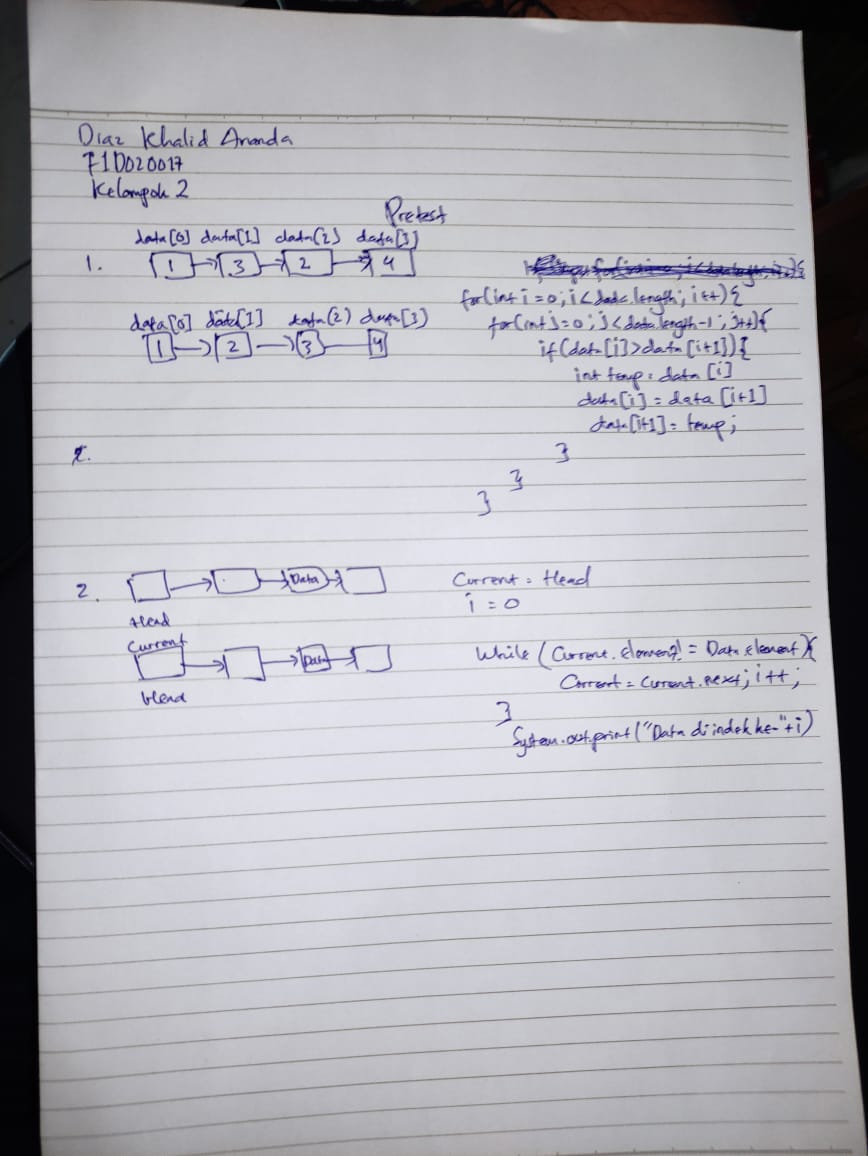 Diaz Khalid Ananda
F1D020017
Kelompok 2
Pretest
data[0] data[1] data[2] data[3]
1. 1 3 2 4
data[0] data[1] data[2] data[3]
1 2 3 4
for(int i=0; i<data.length; i++){
for(int j=0; j<data.length-1; j++){
if(data[i]>data[i+1]){
int temp = data[i]
data[i] = data[i+1]
data[i+1] = temp;
}
}
}
2. Data
Head
Current
Data
Head
Current = Head
i = 0
While (Current.element != Data element){
Current = Current.next; i++;
}
System.out.print("Data di indek ke-"+i)